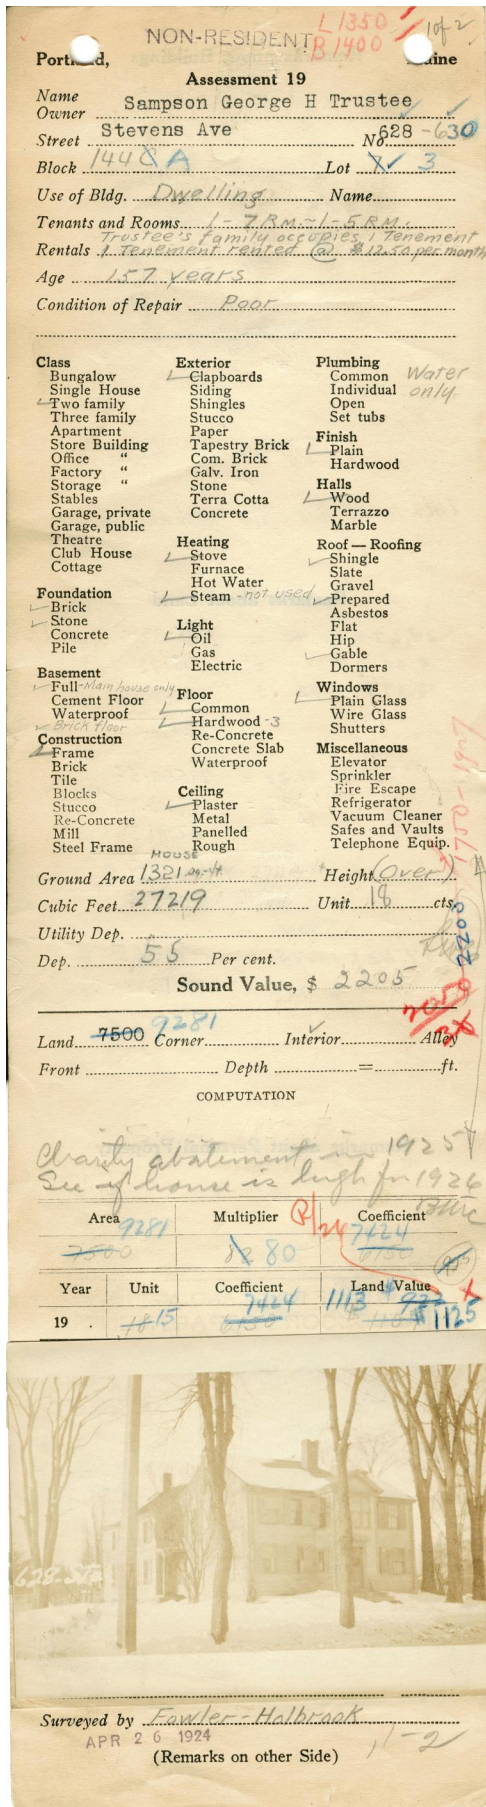 NON-RESIDENT
L 1350
B 1400
1 of 2
Portland, Maine
Assessment 19
Name
Owner Sampson George H Trustee
Street Stevens Ave No. 628-630
Block 144 C A Lot 3
Use of Bldg. Dwelling Name
Tenants and Rooms 1-7 Rm ~ 1-5 Rm.
Trustee's family occupies 1 Tenement
Rentals 1 Tenement rented @ $12.50 per month
Age 157 years
Condition of Repair Poor
Class
Bungalow
Single House
Two family
Three family
Apartment
Store Building
Office "
Factory "
Storage "
Stables
Garage, private
Garage, public
Theatre
Club House
Cottage
Foundation
Brick
Stone
Concrete
Pile
Basement
Full - Main house only
Cement Floor
Waterproof
Brick floor
Construction
Frame
Brick
Tile
Blocks
Stucco
Re-Concrete
Mill
Steel Frame
Exterior
Clapboards
Siding
Shingles
Stucco
Paper
Tapestry Brick
Com. Brick
Galv. Iron
Stone
Terra Cotta
Concrete
Heating
Stove
Furnace
Hot Water
Steam - not used
Light
Oil
Gas
Electric
Floor
Common
Hardwood -3
Re-Concrete
Concrete Slab
Waterproof
Ceiling
Plaster
Metal
Panelled
Rough
Plumbing
Common Water
Individual only.
Open
Set tubs
Finish
Plain
Hardwood
Halls
Wood
Terrazzo
Marble
Roof — Roofing
Shingle
Slate
Gravel
Prepared
Asbestos
Flat
Hip
Gable
Dormers
Windows
Plain Glass
Wire Glass
Shutters
Miscellaneous
Elevator
Sprinkler
Fire Escape
Refrigerator
Vacuum Cleaner
Safes and Vaults
Telephone Equip.
1750-1927
2200
HOUSE
Ground Area 1321 sq.ft. Height (Over)
Cubic Feet 27219 Unit 18 cts.
Utility Dep.
Dep. 55 Per cent.
Sound Value, $ 2205
2050
Land 7500 9281 Corner Interior Alley
Front Depth = ft.
COMPUTATION
Charity abatement in 1925
See if house is high for 1926
Area Multiplier Coefficient
9281 80 7424
7500
Year Unit Coefficient Land Value
19 . 15 7424 1113 $1125
628 St
Surveyed by Fowler-Holbrook
APR 26 1924
1-2
(Remarks on other Side)